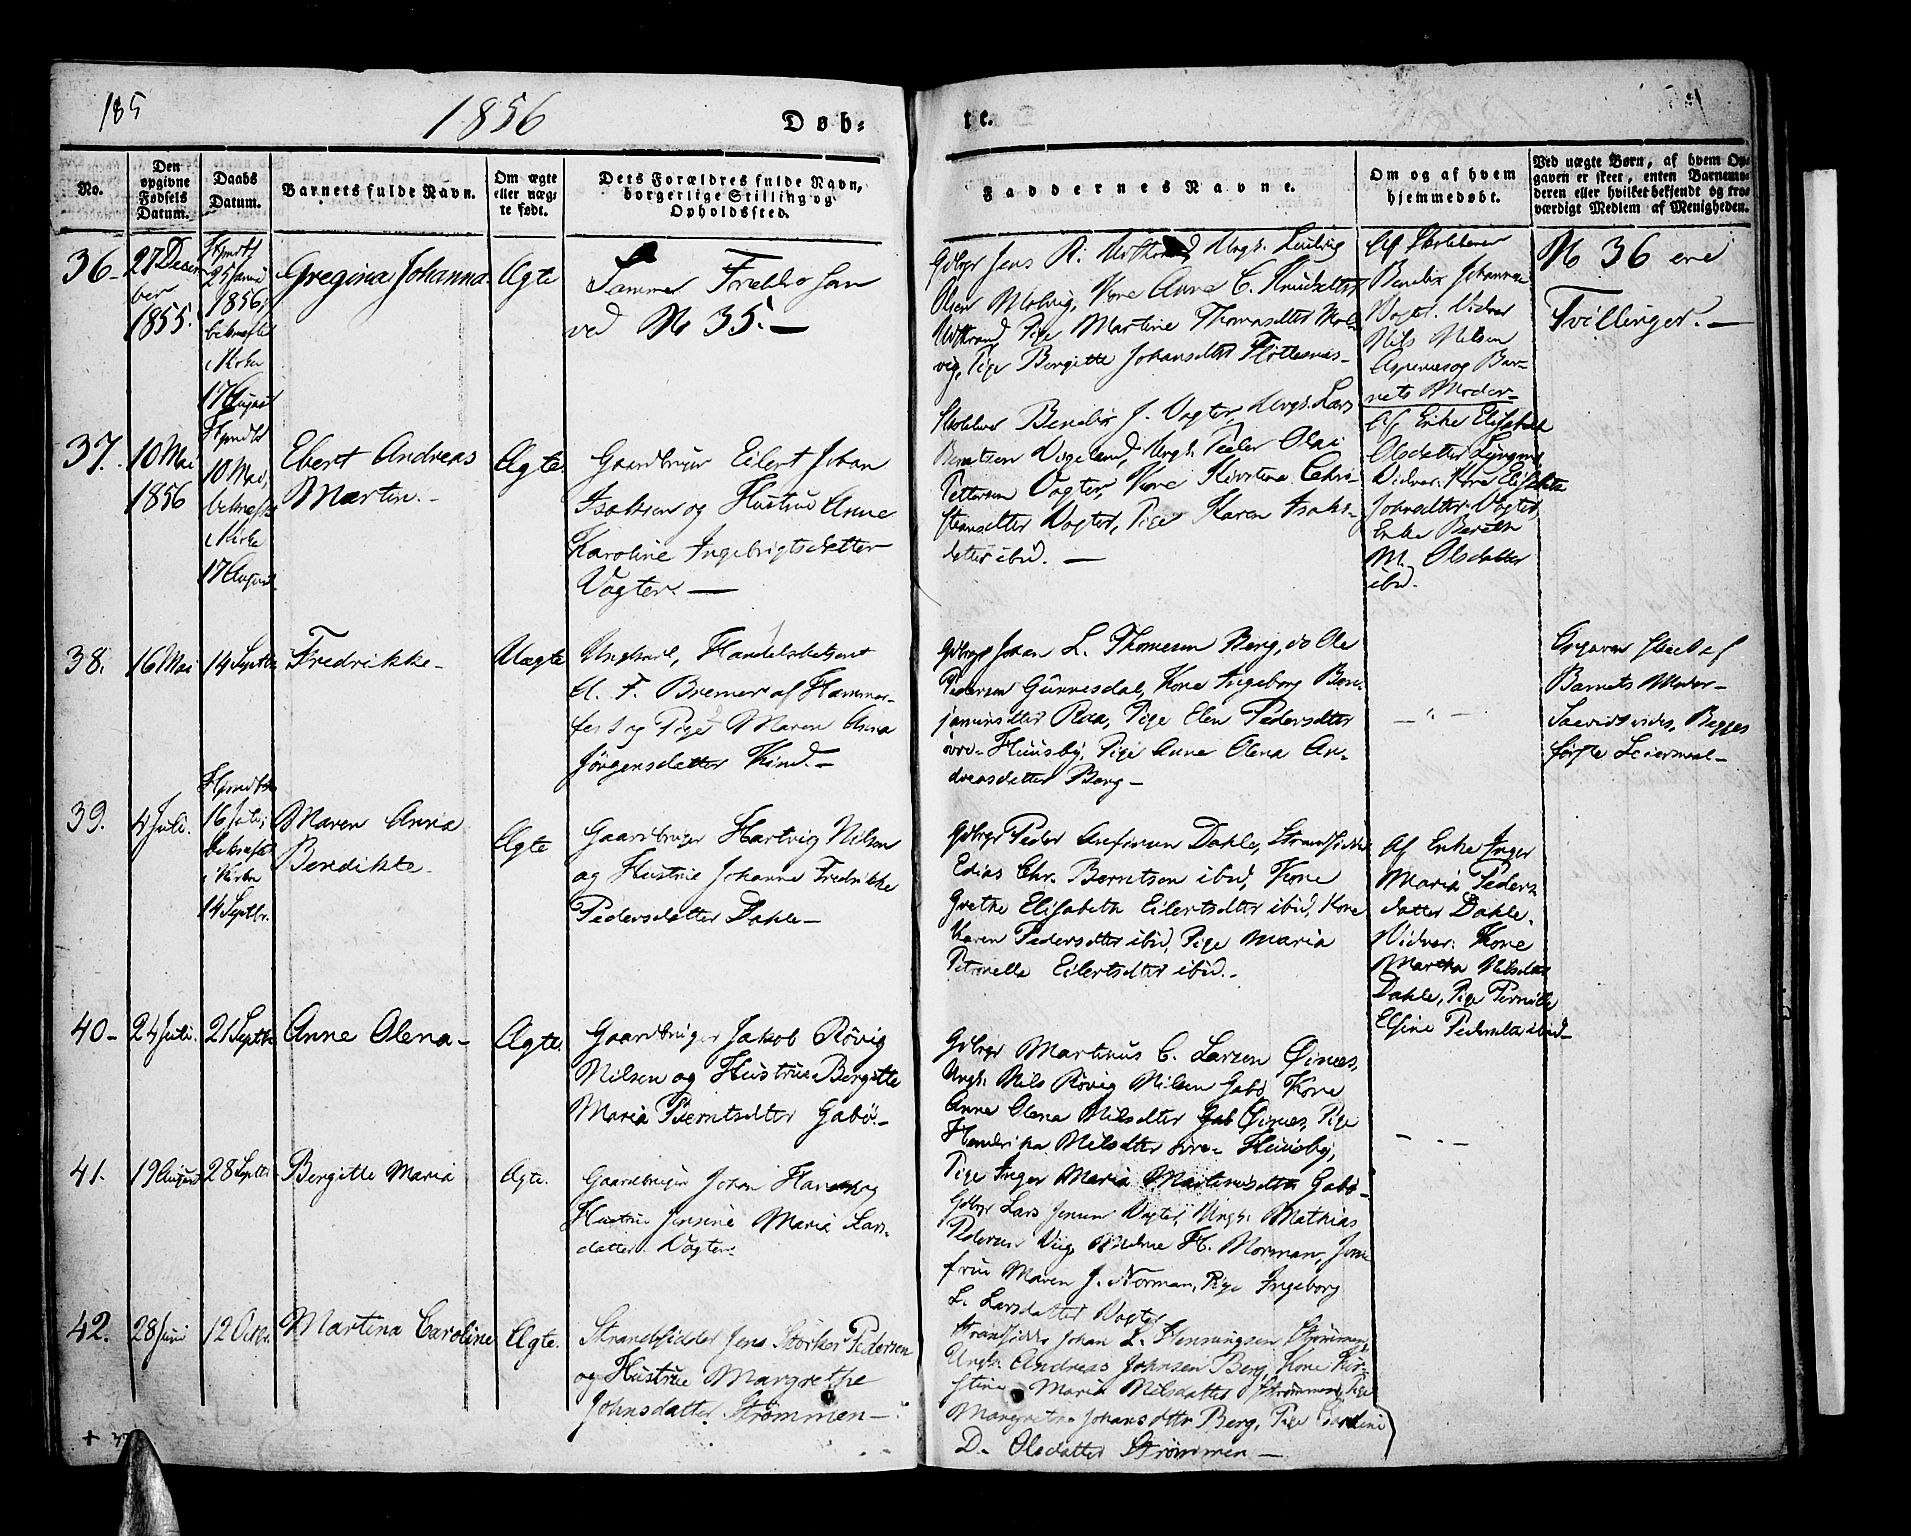 185
1856
Døb-
te.
No.
Den opgivne Fødsels Datum.
Daabs Datum.
Barnets fulde Navn.
Om ægte eller uægte født.
Dets Forældres fulde Navn, borgerlige Stilling og Opholdssted.
Faddernes Navne.
Om og af hvem hjemmedøbt.
Ved uægte Børn, af hvem Opgaven er skeet, enten Barnemoderen eller hvilket bekjendt og troværdigt Medlem af Menigheden.
36.
27 Decem-
ber
1855.
Hjmdbt
25 Janu
1856,
bekræftet
i Kirke
17 August
Gregina Johanna.
Ægte
Samme Forældre som
ved No 35.—
Gdbrgr Jens R. Ungk. Ludvig
Olsen Molvig, Kone Anne C. Knudsdttr
Pige Martine Thomasdtter Mol-
vig, Pige Bergitte Johansdttr
Af Skolelærer
Benedix Johannes
Vogter. Vidner
Nils Nilsen
Aspenes og Bar-
nets Moder-
No 36 ere
Tvillinger.—
37.
10 Mai
1856
Hjmdbt
10 Mai,
bekræftet
i Kirke
17 August.
Ebert Andreas
Martin.-
Ægte.
Gaardbruger Eilert Johan
Isaksen og Hustrue Anne
Karoline Ingebrigtsdatter
Vogter.—
Skolelærer Benedix J. Vogter, Ungk. Lars
Berntsen Vogeland, Ungk. Peder Olai
Pettersen Vogter, Kone Kirstina Chri-
stensdtter Vogter, Pige Karen Isaks-
datter ibid.—
Af Enke Elisabeth
Olsdatter
Vidner: Kone Elisabeth
Johnsdtter Vogter,
Enke Bereth
M. Olsdatter
ibid.
38.
16 Mai
14 Septbr
Fredrikke-
Uægte
Ungkarl, Handelsbetjent
F. Bremer af Hammer-
fest og Pige Maren Anna
Jörgensdatter Kind.-
Gdbrgr Johan L. Thomesen Berg, do Ole
Pedersen Gunnesdal, Kone Ingeborg Ben-
jaminsdtter Raa, Pige Elen Pedersdtter
övre-Huusby, Pige Anne Olena An-
dreasdatter Berg-
— " —
Opgaven skeet af
Barnets Moder-
Saavidt vides, Begges
første Leiermaal-
39.
4 Juli.
Hjmdbt
16 Juli,
bekræftet
i Kirken
14 Septbr.
Maren Anna
Bendikte.
Ægte
Gaardbruger Hartvig Nilsen
og Hustrue Johanna Fredrikke
Pedersdatter Dahle-
Gdbrgr Peder Dahle, Strandsidder
Edias Chr. Berntsen ibid, Kone
Grethe Elisabeth Eilertsdtter ibid, Kone
Karen Pedersdtter ibid, Pige Maria
Petronella Eilertsdtter ibid.-
Af Enke Inger
Maria Peders
datter Dahle.
Vidner: Kone
Martha Nilsdatter
Dahle, Pige Pernille
Elsine Pedersdtter ibid-
40-
24 Juli.
21 Septbr
Anne Olena-
Ægte.
Gaardbruger Jakob Rövig
Nilsen og Hustrue Bergitte
Maria Berntsdtter Gabö.-
Gdbrgr Martinus C. Larsen Öines,
Ungk. Nils Rövig Nilsen Gabö, Kone
Anne Olena Nilsdtter Gab Öines, Pige
Hendrikka Nilsdtter övre-Huusby,
Pige Inger Maria Martinusdtter Gabö-
— " —
41.
19 August
28 Septbr
Bergitte Maria
Ægte.
Gaardbruger Johan Hansen og
Hustrue Jensine Maria Lars-
datter Vogter.
Gdbrgr Lars Jensen Vogter, Ungk. Mathias
Pedersen Viig, H. Norman, Jom
frue Maren J. Norman, Pige Ingeborg
L. Larsdatter Vogter
42.
28 Juni
12 Octbr.
Martina Caroline
Ægte.
Strandsidder Jens Störker Pedersen
og Hustrue Margrethe
Johnsdatter Strömmen-
Strandsidder Johan L. Henningsen Strömmen,
Ungk. Andreas Johnsen Berg, Kone Kir-
stine Maria Nilsdatter Strömmen, Pige
Margrethe Johansdttr Berg, Pige Caroline
D. Olsdatter Strömmen-